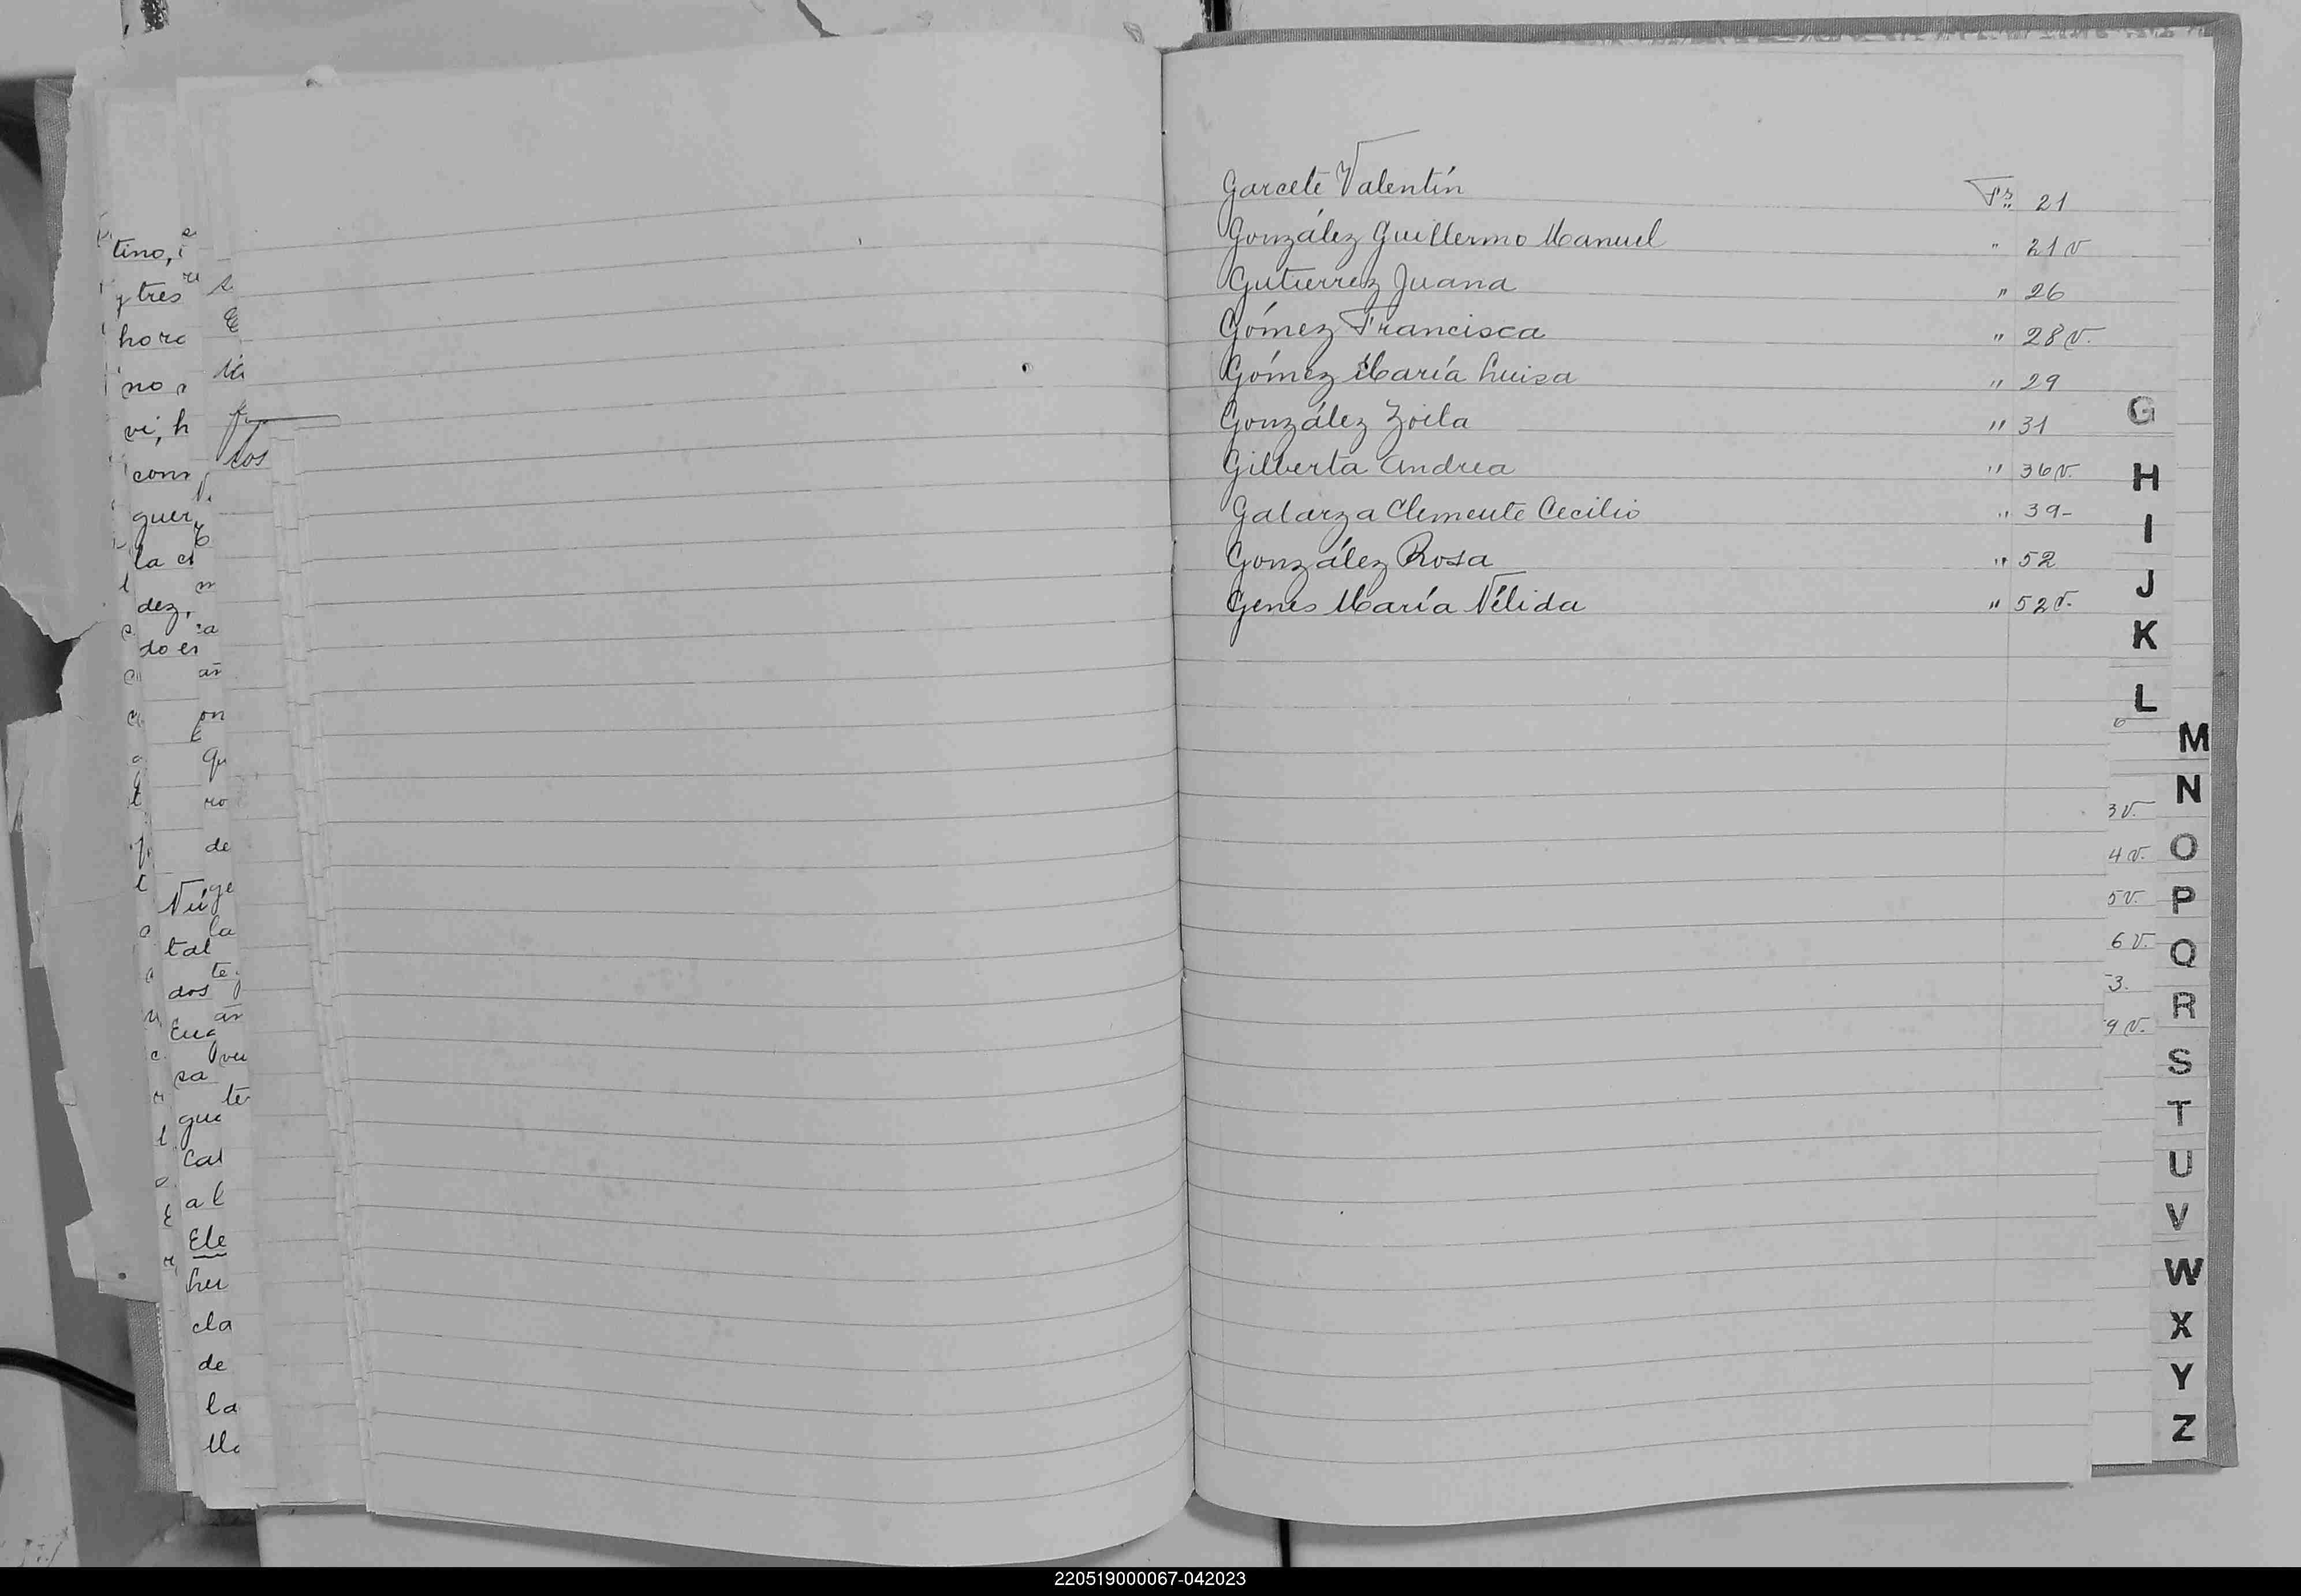 Garcete Valentín Fs. 21
González Guillermo Manuel " 21 v
Gutierrez Juana " 26
Gómez Francisca " 28 v.
Gómez María Luisa " 29
González Zoila " 31
Gilberta Andrea " 36 v.
Galarza Clemente Cecilio " 39-
González Rosa " 52
Genes María Nélida " 52 v.
G
H
I
J
K
L
M
N
O
P
Q
R
S
T
U
V
W
X
Y
Z
3 v.
4 v.
5 v.
6 v.
3.
9 v.
tino,
y tres
hora
no
vi, h
guer
la ci
dez,
do en
tal
dos
sa
que
al
Ele
cla
de
la
220519000067-042023